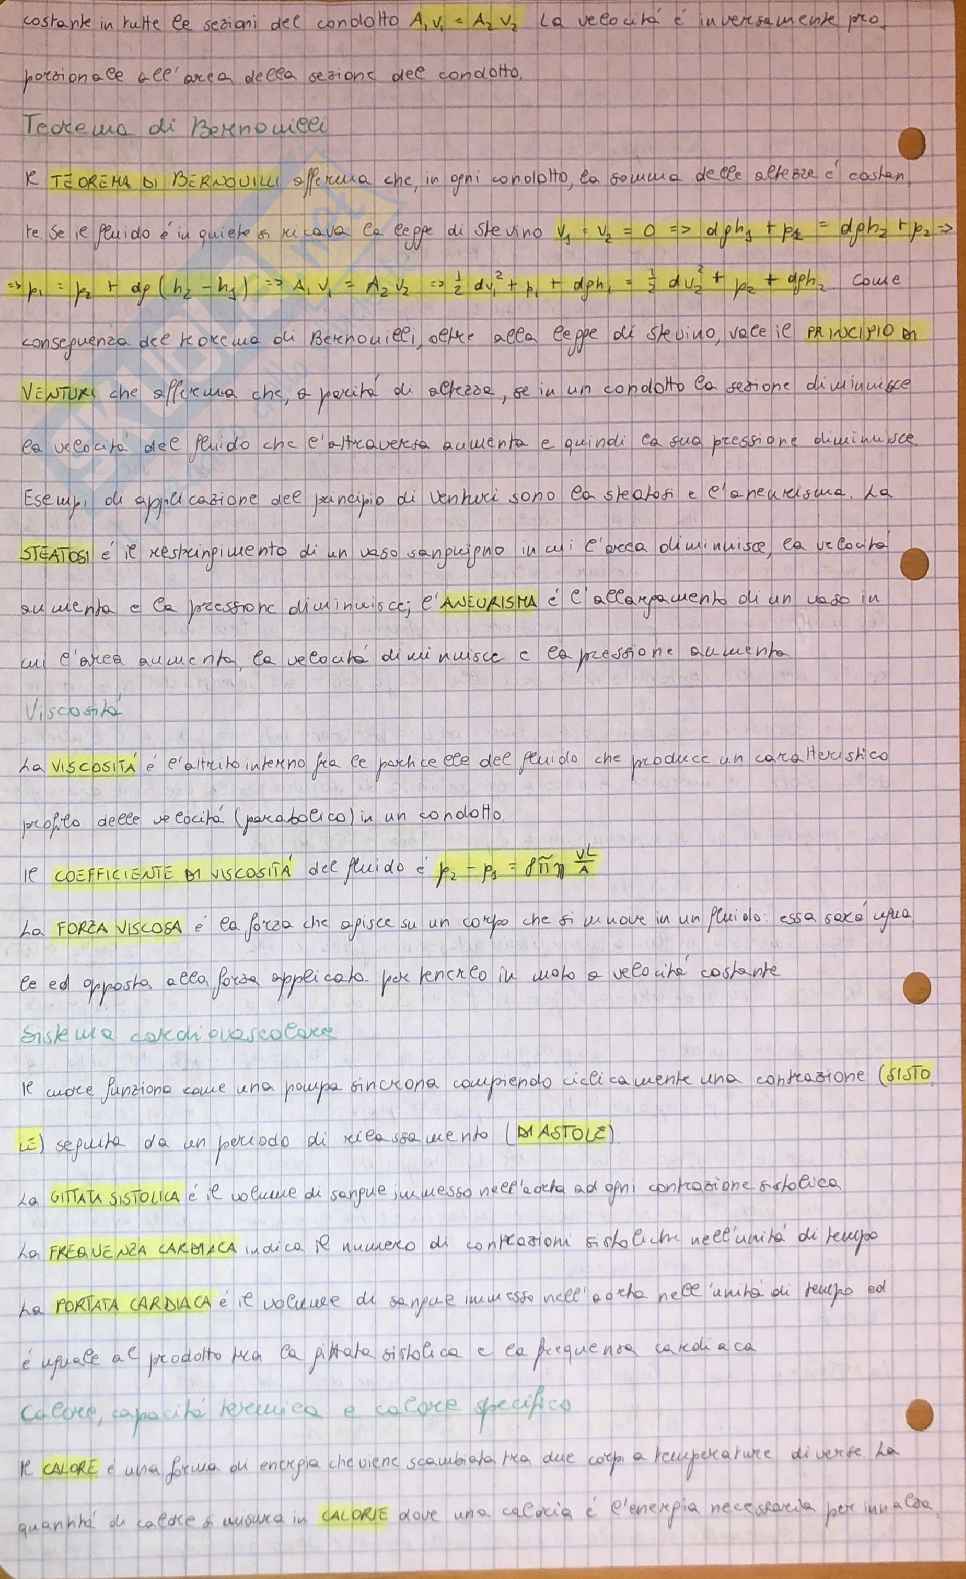 costante in tutte le sezioni del condotto A₁v₁ = A₂v₂ La velocitá é inversamente pro
porzionale all'area della sezione del condotto.
Teorema di Bernouilli
Il TEOREMA DI BERNOUILLI afferma che, in ogni condotto, la somma delle altezze é costan
te se il fluido é in quiete si ricava la legge di Stevino v₁ = v₂ = 0 => dgh₁ + p₁ = dgh₂ + p₂ =>
=> p₁ = p₂ + dg (h₂ - h₁) => A₁v₁ = A₂v₂ => ½ dv₁² + p₁ + dgh₁ = ½ dv₂² + p₂ + dgh₂ Come
conseguenza del teorema di Bernouilli, oltre alla legge di Stevino, vale il PRINCIPIO DI
VENTURI che afferma che, a paritá di altezza, se in un condotto la sezione diminuisce
la velocitá del fluido che l'attraversa aumenta e quindi la sua pressione diminuisce
Esempi di applicazione del principio di Venturi sono la steatosi e l'aneurisma. La
STEATOSI é il restringimento di un vaso sanguigno in cui l'area diminuisce, la velocitá
aumenta e la pressione diminuisce; l'ANEURISMA é l'allargamento di un vaso in
cui l'area aumenta, la velocitá diminuisce e la pressione aumenta
Viscositá
La VISCOSITÁ é l'attrito interno fra le particelle del fluido che produce un caratteristico
profilo delle velocitá (parabolico) in un condotto
Il COEFFICIENTE DI VISCOSITÁ del fluido é p₂ - p₁ = 8πη vL/A
La FORZA VISCOSA é la forza che agisce su un corpo che si muove in un fluido: essa sará ugua
le ed opposta alla forza applicata per tenerlo in moto a velocitá costante
Sistema cardiovascolare
Il cuore funziona come una pompa sincrona compiendo ciclicamente una contrazione (SISTO
LE) seguita da un periodo di rilassamento (DIASTOLE)
La GITTATA SISTOLICA é il volume di sangue immesso nell'aorta ad ogni contrazione sistolica
La FREQUENZA CARDIACA indica il numero di contrazioni sistoliche nell'unitá di tempo
La PORTATA CARDIACA é il volume di sangue immesso nell'aorta nell'unitá di tempo ed
é uguale al prodotto tra la gittata sistolica e la frequenza cardiaca
Calore, capacitá termica e calore specifico
Il CALORE é una forma di energia che viene scambiata tra due corpi a temperature diverse La
quantitá di calore si misura in CALORIE dove una caloria é l'energia necessaria per innalza